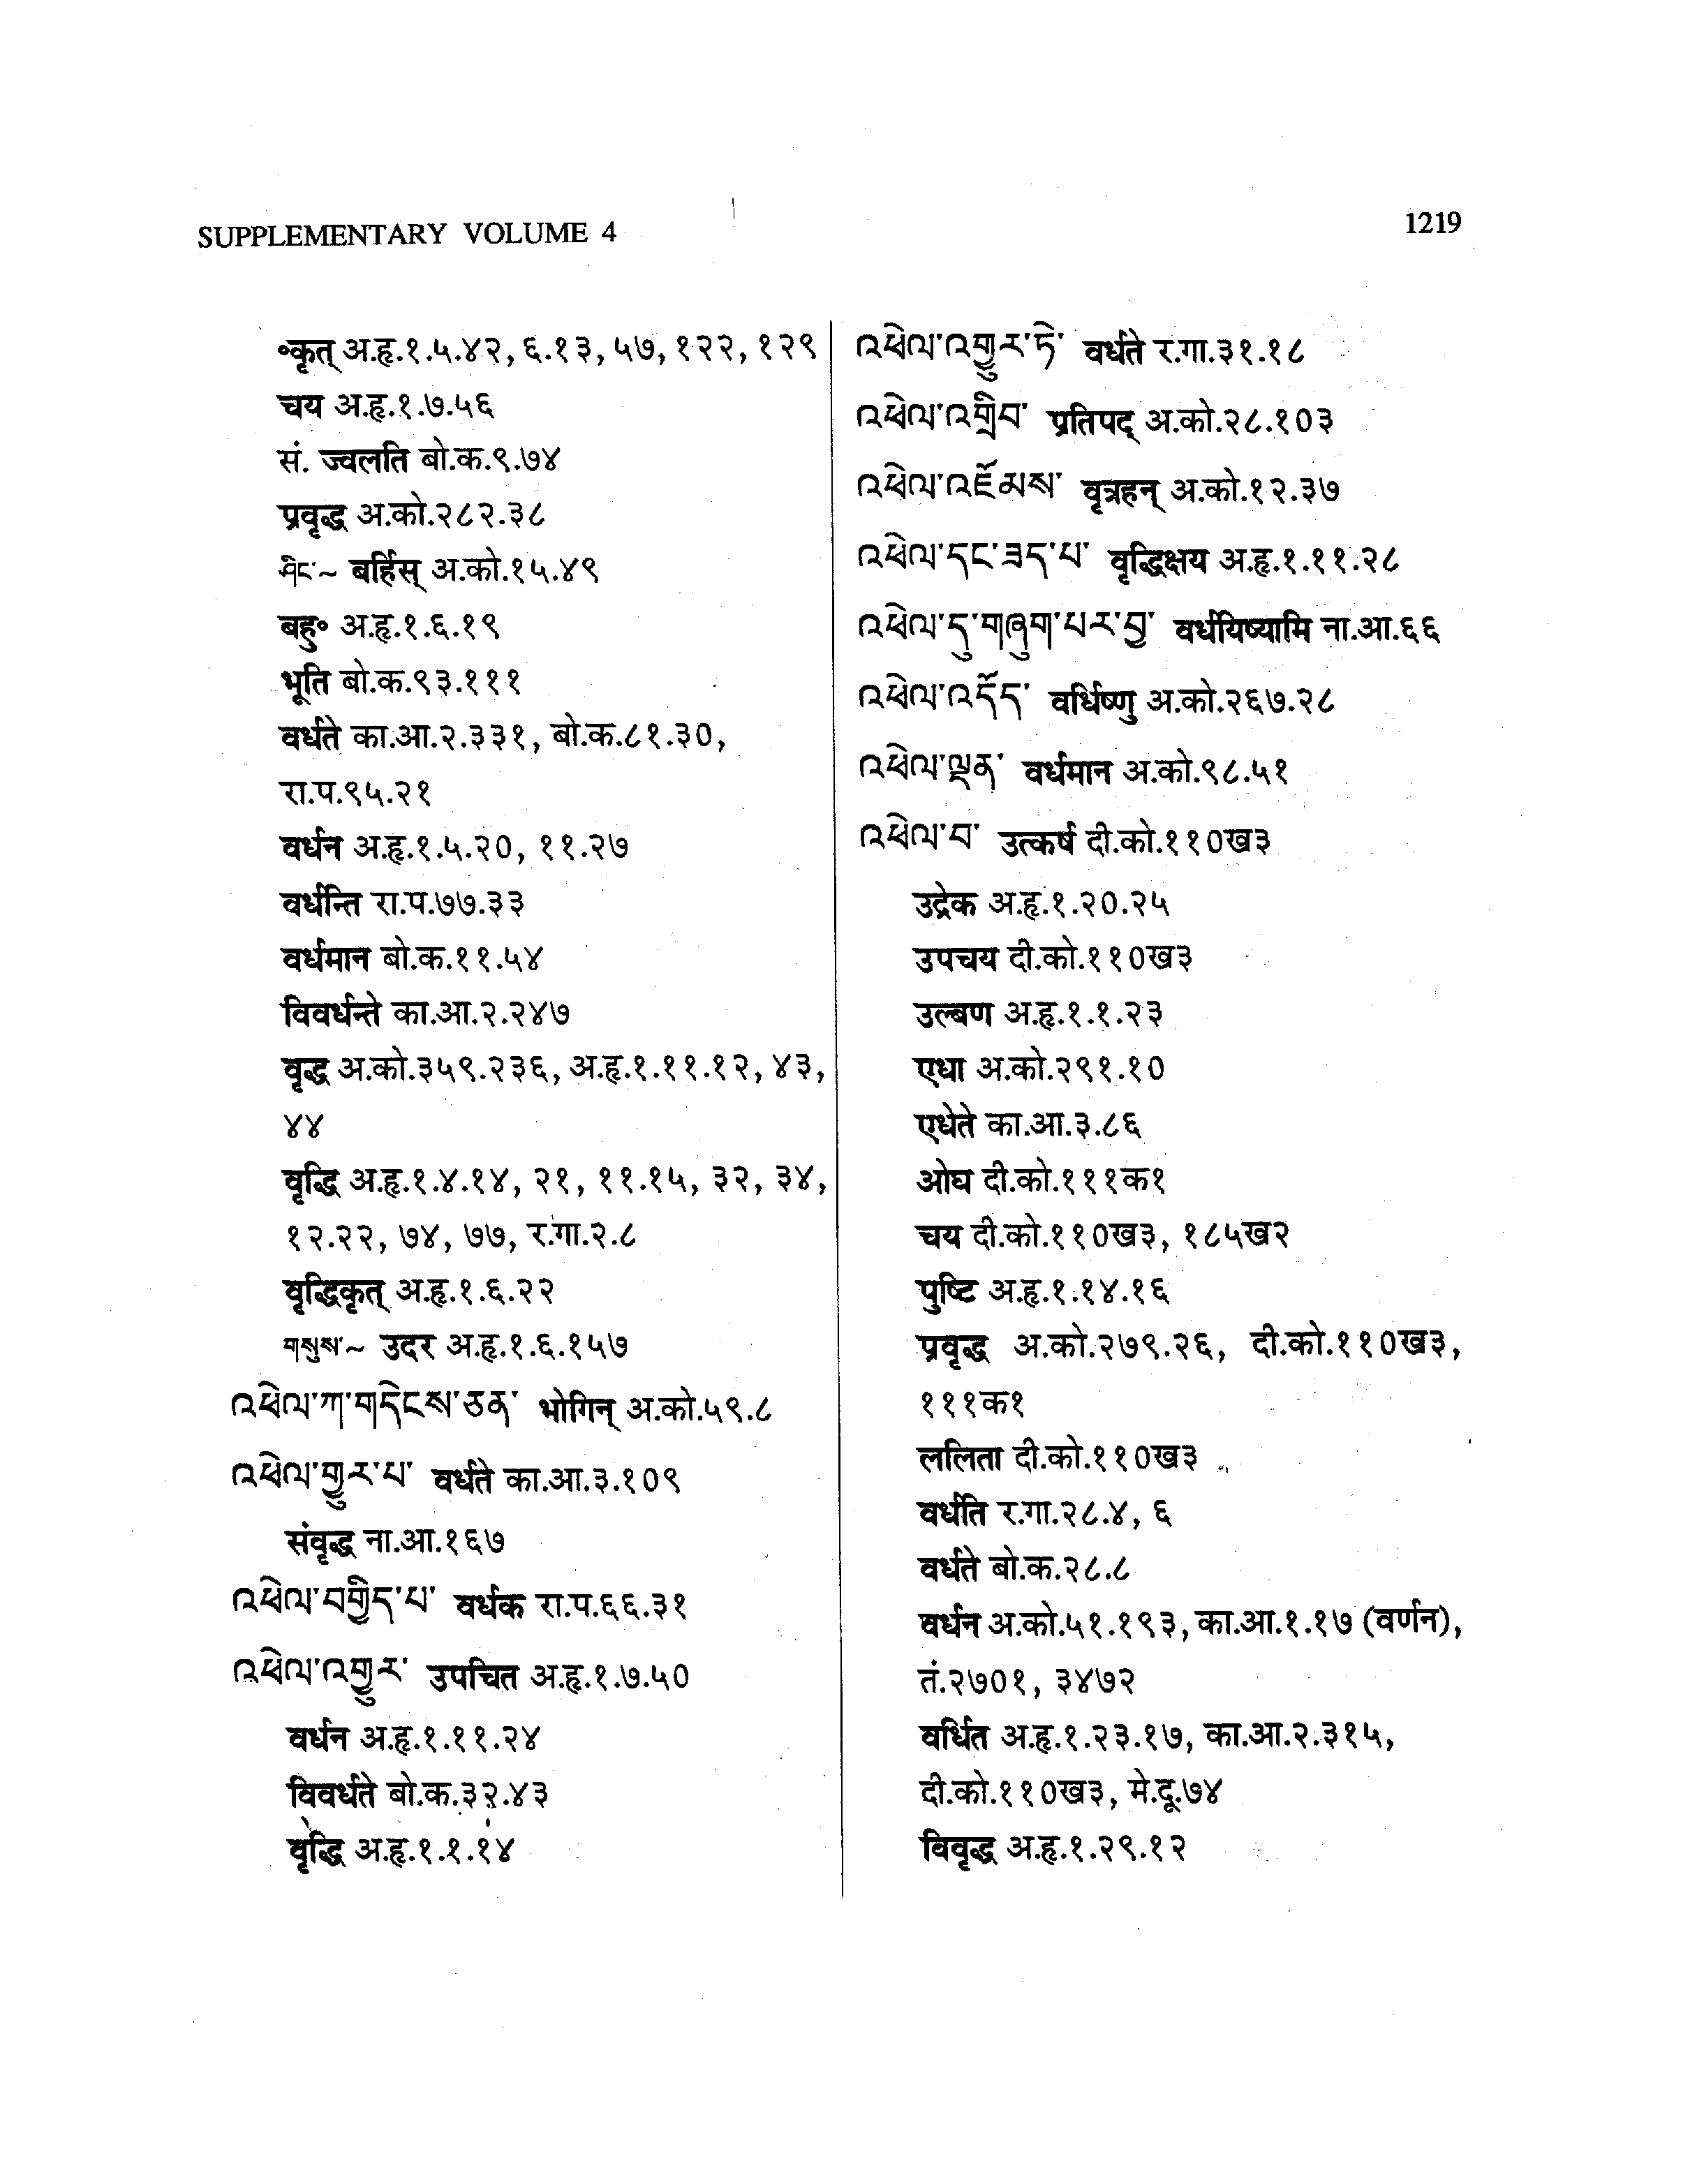 SUPPLEMENTARY VOLUME 4
1219
॰कृत् अ.हृ.१.५.४२, ६.१३, ५७, १२२, १२९
चय अ.हृ.१.७.५६
सं. ज्वलति बो.क.९.७४
प्रवृद्ध अ.को.२८२.३८
ཤིང་~ बर्हिस् अ.को.१५.४९
बहु॰ अ.हृ.१.६.१९
भूति बो.क.९३.१११
वर्धते का.आ.२.३३१, बो.क.८१.३०,
रा.प.९५.२१
वर्धन अ.हृ.१.५.२०, ११.२७
वर्धन्ति रा.प.७७.३३
वर्धमान बो.क.११.५४
विवर्धन्ते का.आ.२.२४७
वृद्ध अ.को.३५९.२३६, अ.हृ.१.११.१२, ४३,
४४
वृद्धि अ.हृ.१.४.१४, २१, ११.१५, ३२, ३४,
१२.२२, ७४, ७७, र.गा.२.८
वृद्धिकृत् अ.हृ.१.६.२२
གསུས་~ उदर अ.हृ.१.६.१५७
འཕེལ་ཀ་གདེངས་ཅན་ भोगिन् अ.को.५९.८
འཕེལ་གྱུར་པ་ वर्धते का.आ.३.१०९
संवृद्ध ना.आ.१६७
འཕེལ་བགྱིད་པ་ वर्धक रा.प.६६.३१
འཕེལ་འགྱུར་ उपचित अ.हृ.१.७.५०
वर्धन अ.हृ.१.११.२४
विवर्धते बो.क.३२.४३
वृद्धि अ.हृ.१.१.१४
འཕེལ་འགྱུར་ཏེ་ वर्धते र.गा.३१.१८
འཕེལ་འགྲིབ་ प्रतिपद् अ.को.२८.१०३
འཕེལ་འཇོམས་ वृत्रहन् अ.को.१२.३७
འཕེལ་དང་ཟད་པ་ वृद्धिक्षय अ.हृ.१.११.२८
འཕེལ་དུ་གཞུག་པར་བྱ་ वर्धयिष्यामि ना.आ.६६
འཕེལ་འདོད་ वर्धिष्णु अ.को.२६७.२८
འཕེལ་ལྡན་ वर्धमान अ.को.९८.५१
འཕེལ་བ་ उत्कर्ष दी.को.११०ख३
उद्रेक अ.हृ.१.२०.२५
उपचय दी.को.११०ख३
उल्बण अ.हृ.१.१.२३
एधा अ.को.२९१.१०
एधेते का.आ.३.८६
ओघ दी.को.१११क१
चय दी.को.११०ख३, १८५ख२
पुष्टि अ.हृ.१.१४.१६
प्रवृद्ध अ.को.२७९.२६, दी.को.११०ख३,
१११क१
ललिता दी.को.११०ख३
वर्धति र.गा.२८.४, ६
वर्धते बो.क.२८.८
वर्धन अ.को.५१.१९३, का.आ.१.१७ (वर्णन),
तं.२७०१, ३४७२
वर्धित अ.हृ.१.२३.१७, का.आ.२.३१५,
दी.को.११०ख३, मे.दू.७४
विवृद्ध अ.हृ.१.२९.१२